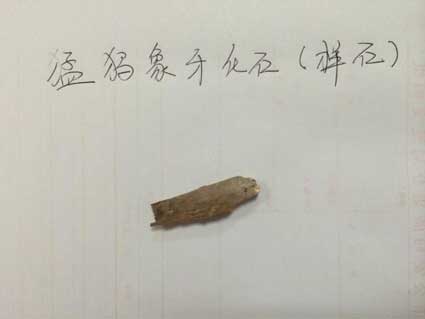 猛犸象牙化石(样石)